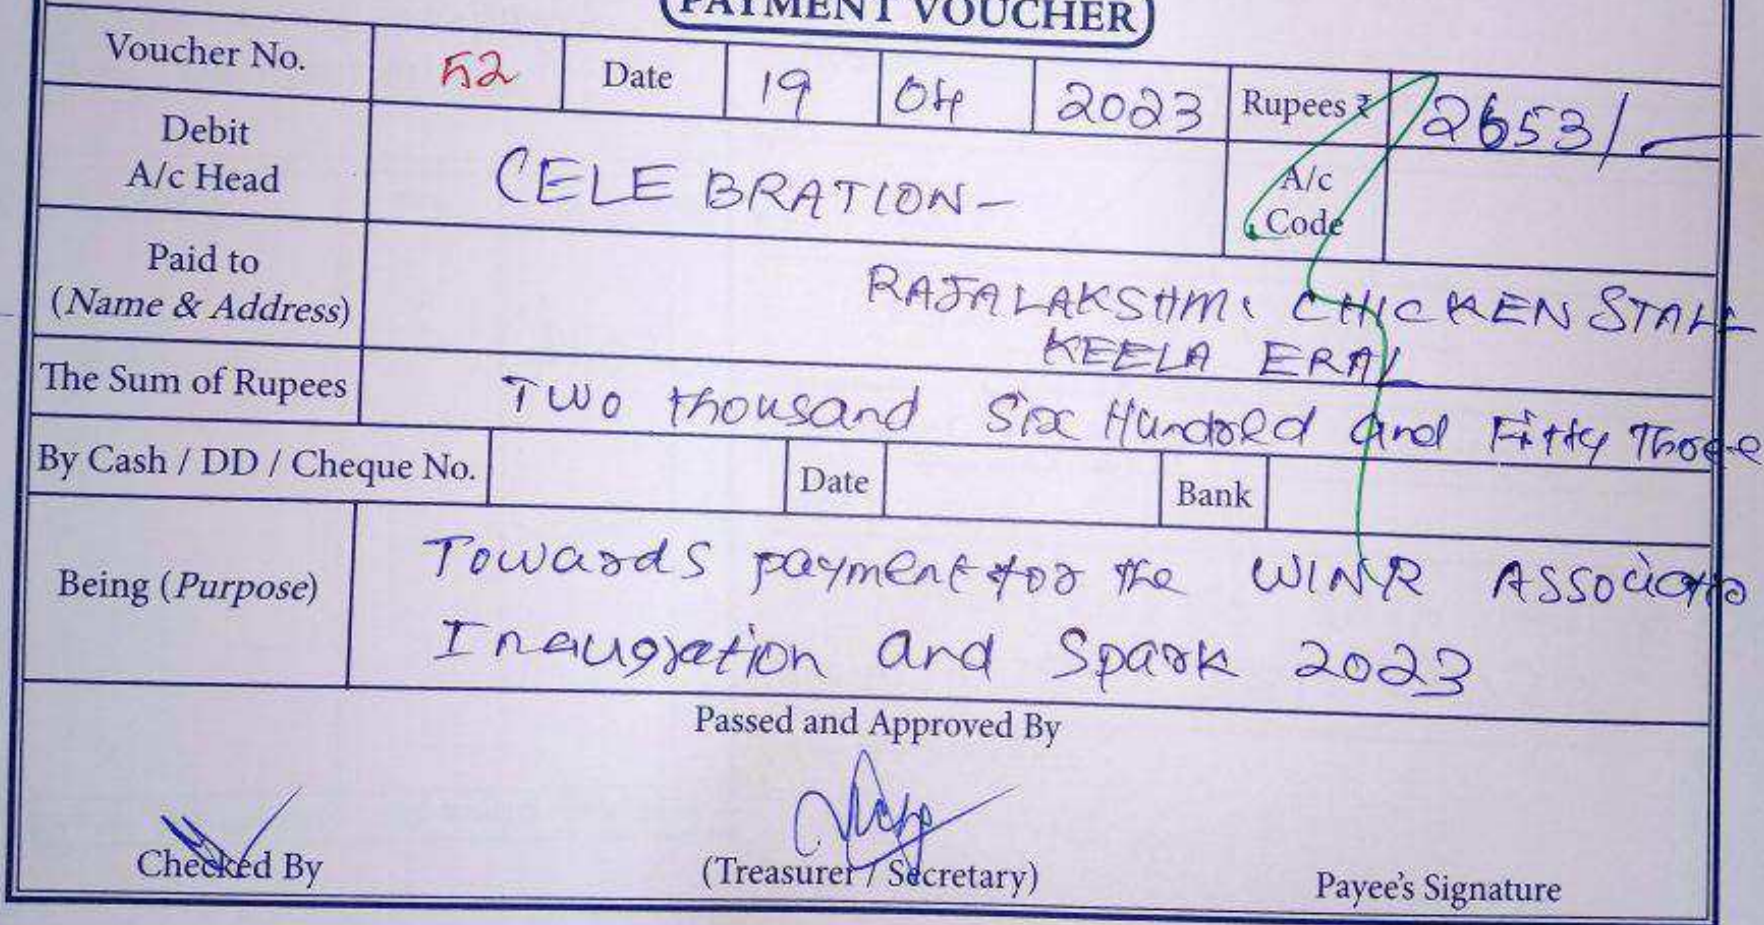 PAYMENT VOUCHER
Voucher No. 52 Date 19 04 2023 Rupees ₹ 2653/-
Debit
A/c Head CELEBRATION- A/c
Code
Paid to
(Name & Address) RAJALAKSHMI CHICKEN STALL
KEELA ERAL
The Sum of Rupees Two thousand Six Hundred and Fifty Three
By Cash / DD / Cheque No. Date Bank
Being (Purpose) Towards payment for the WINR
Inaugration and Spark 2023
Passed and Approved By
Checked By (Treasurer / Secretary) Payee's Signature